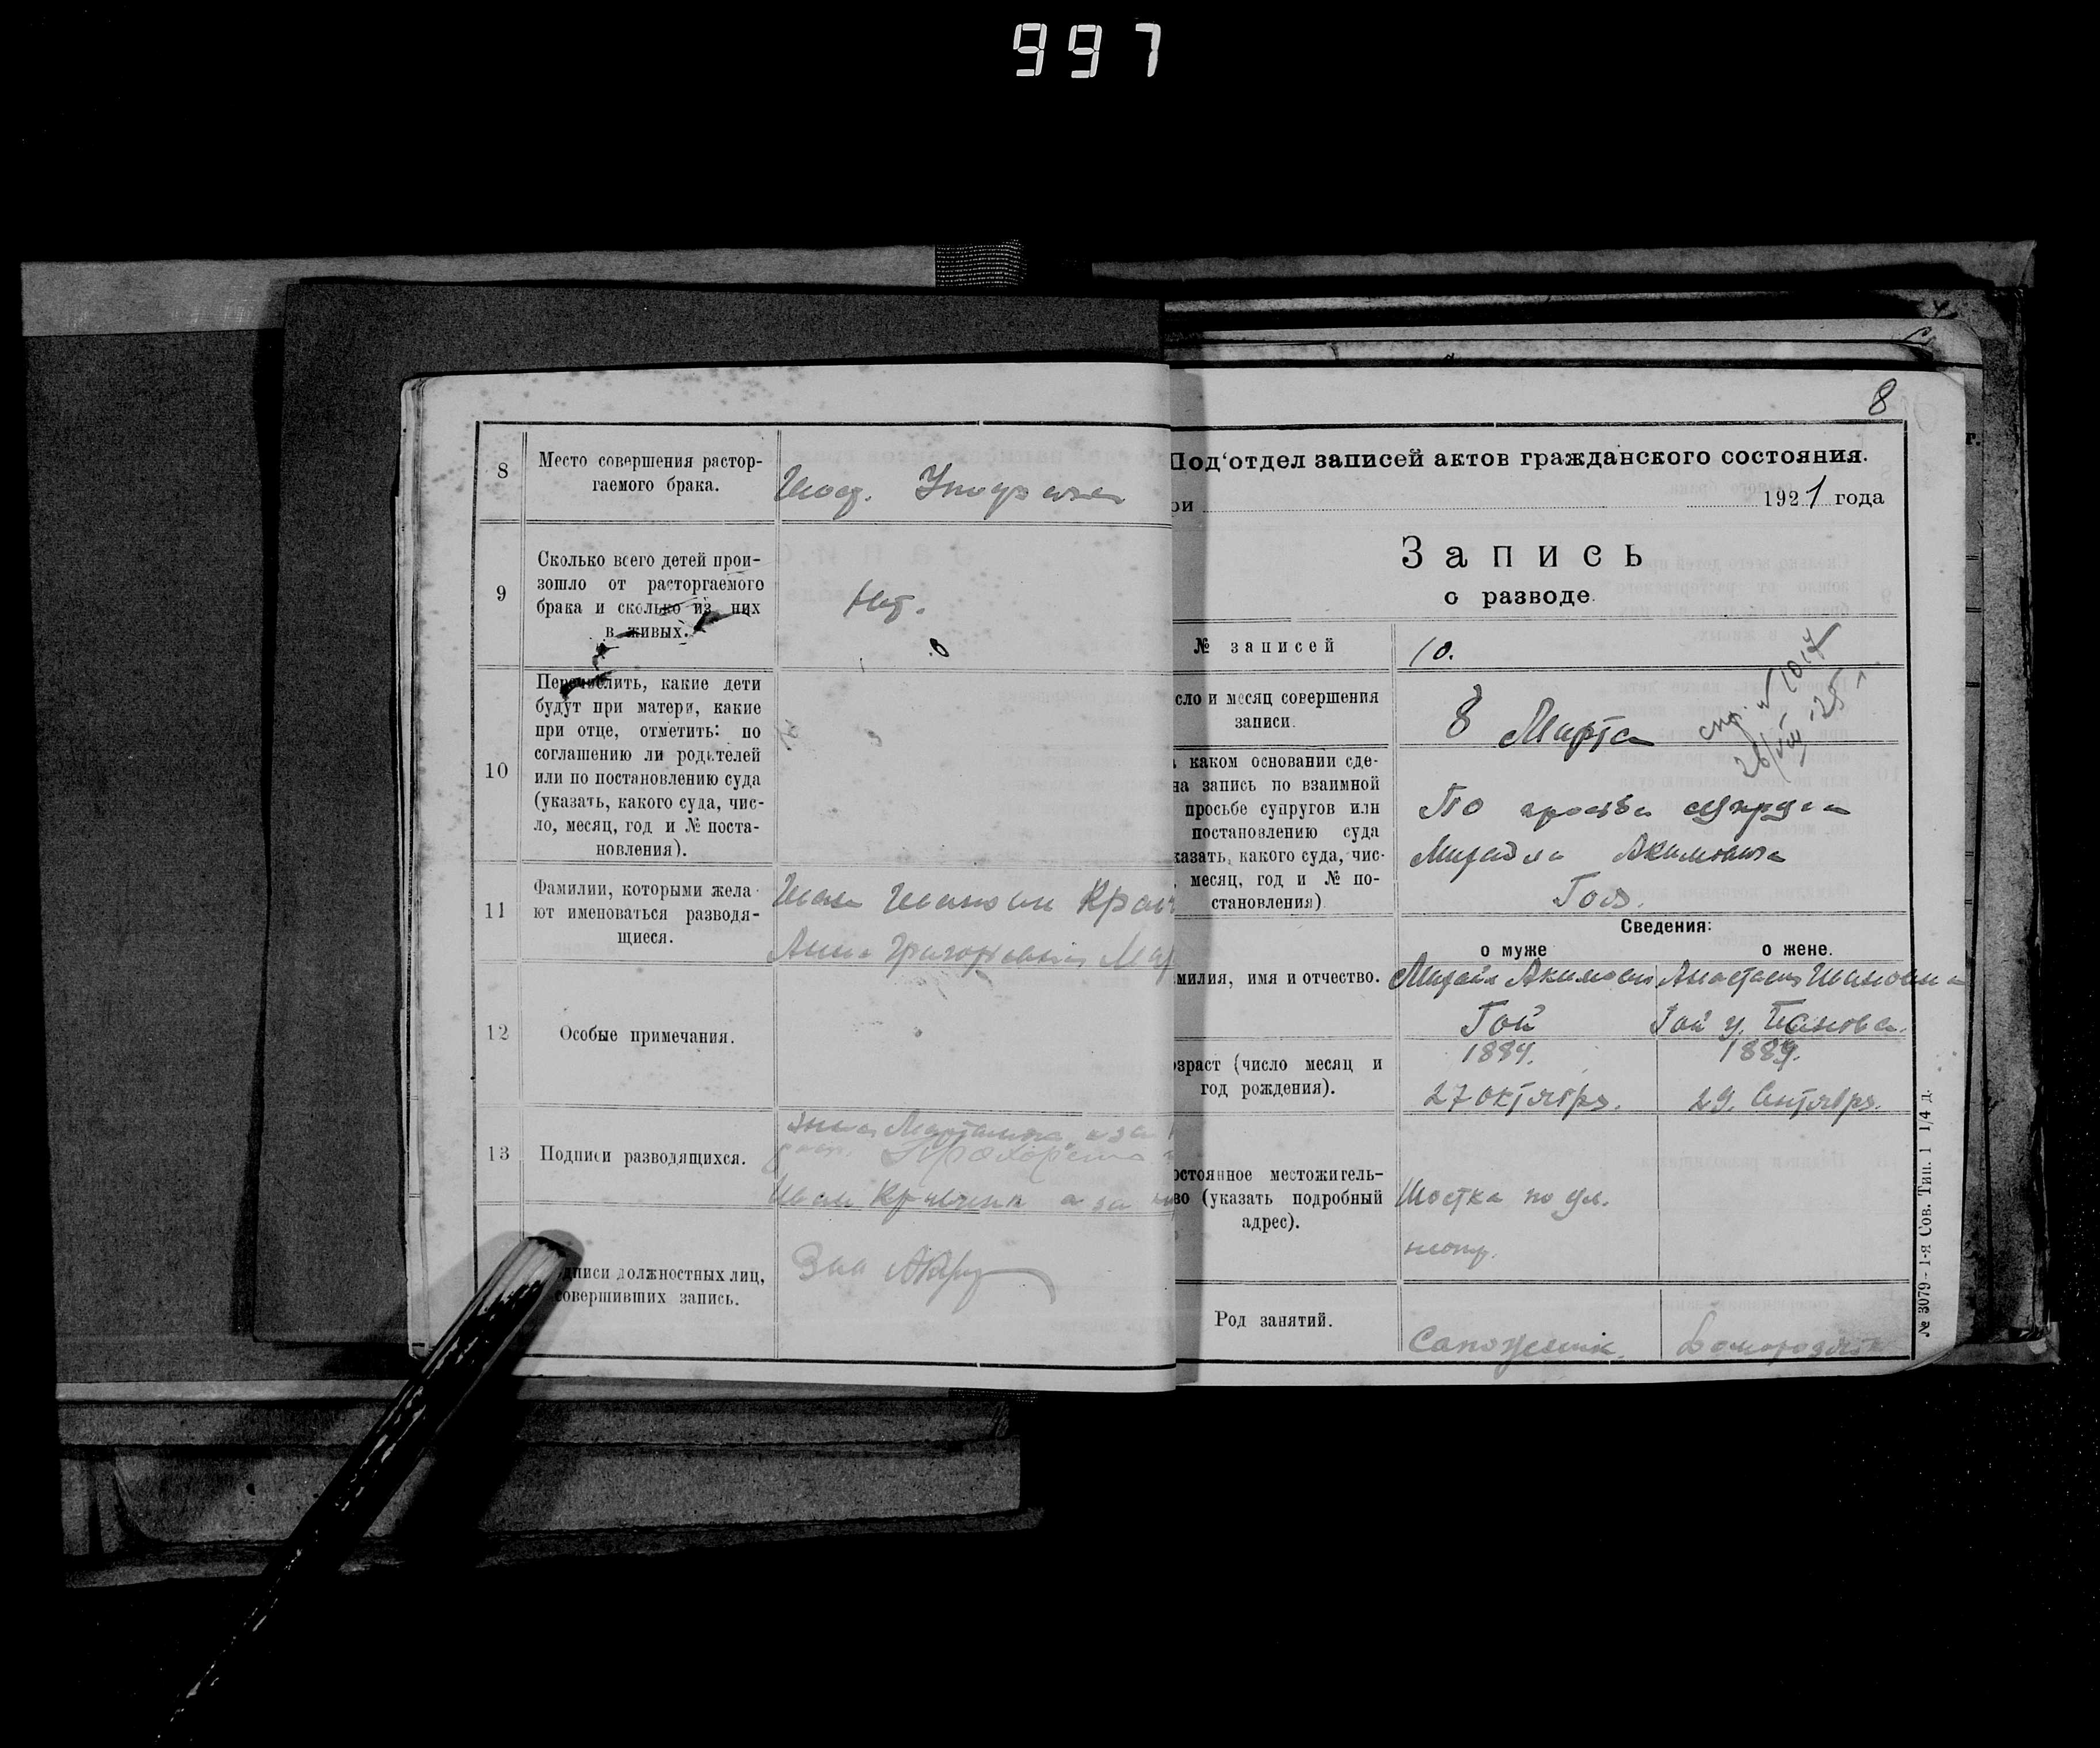 997
8 Место совершения растор-
гаемого брака.
9 Сколько всего детей прои-
зошло от расторгаемого
брака и сколько из них
в живых.
Нет.
10 Перечислить, какие дети
будут при матери, какие
при отце, отметить: по
соглашению ли родителей
или по постановлению суда
(указать, какого суда, чис-
ло, месяц, год и № поста-
новления).
11 Фамилии, которыми жела-
ют именоваться разводя-
щиеся.
Иван Иванович
Анна Григорьевна
12 Особые примечания.
13 Подписи разводящихся.
Иван а за
дписи должностных лиц,
совершивших запись.
Зав
8
Под‘отдел записей актов гражданского состояния.
ри 1921 года
Запись
о разводе.
№ записей 10.
сло и месяц совершения
записи.
8 Марта
26/VIII-25
каком основании сде-
на запись по взаимной
просьбе супругов или
постановлению суда
казать, какого суда, чис-
месяц, год и № по-
становления)
По просьбе супруга
Михаила Акимовича
Гоя.
Сведения:
о муже о жене.
милия, имя и отчество. Михаил Акимович Анастасия Ивановна
Гой Гой у. Панова.
озраст (число месяц и
год рождения).
1884. 1889.
27 октября. 29. Сентября.
остоянное местожитель-
во (указать подробный
адрес).
Шостка по ул.
Род занятий.
Сапожник.
№ 3079 - 1-я Сов. Тип. 1 1/4 д.